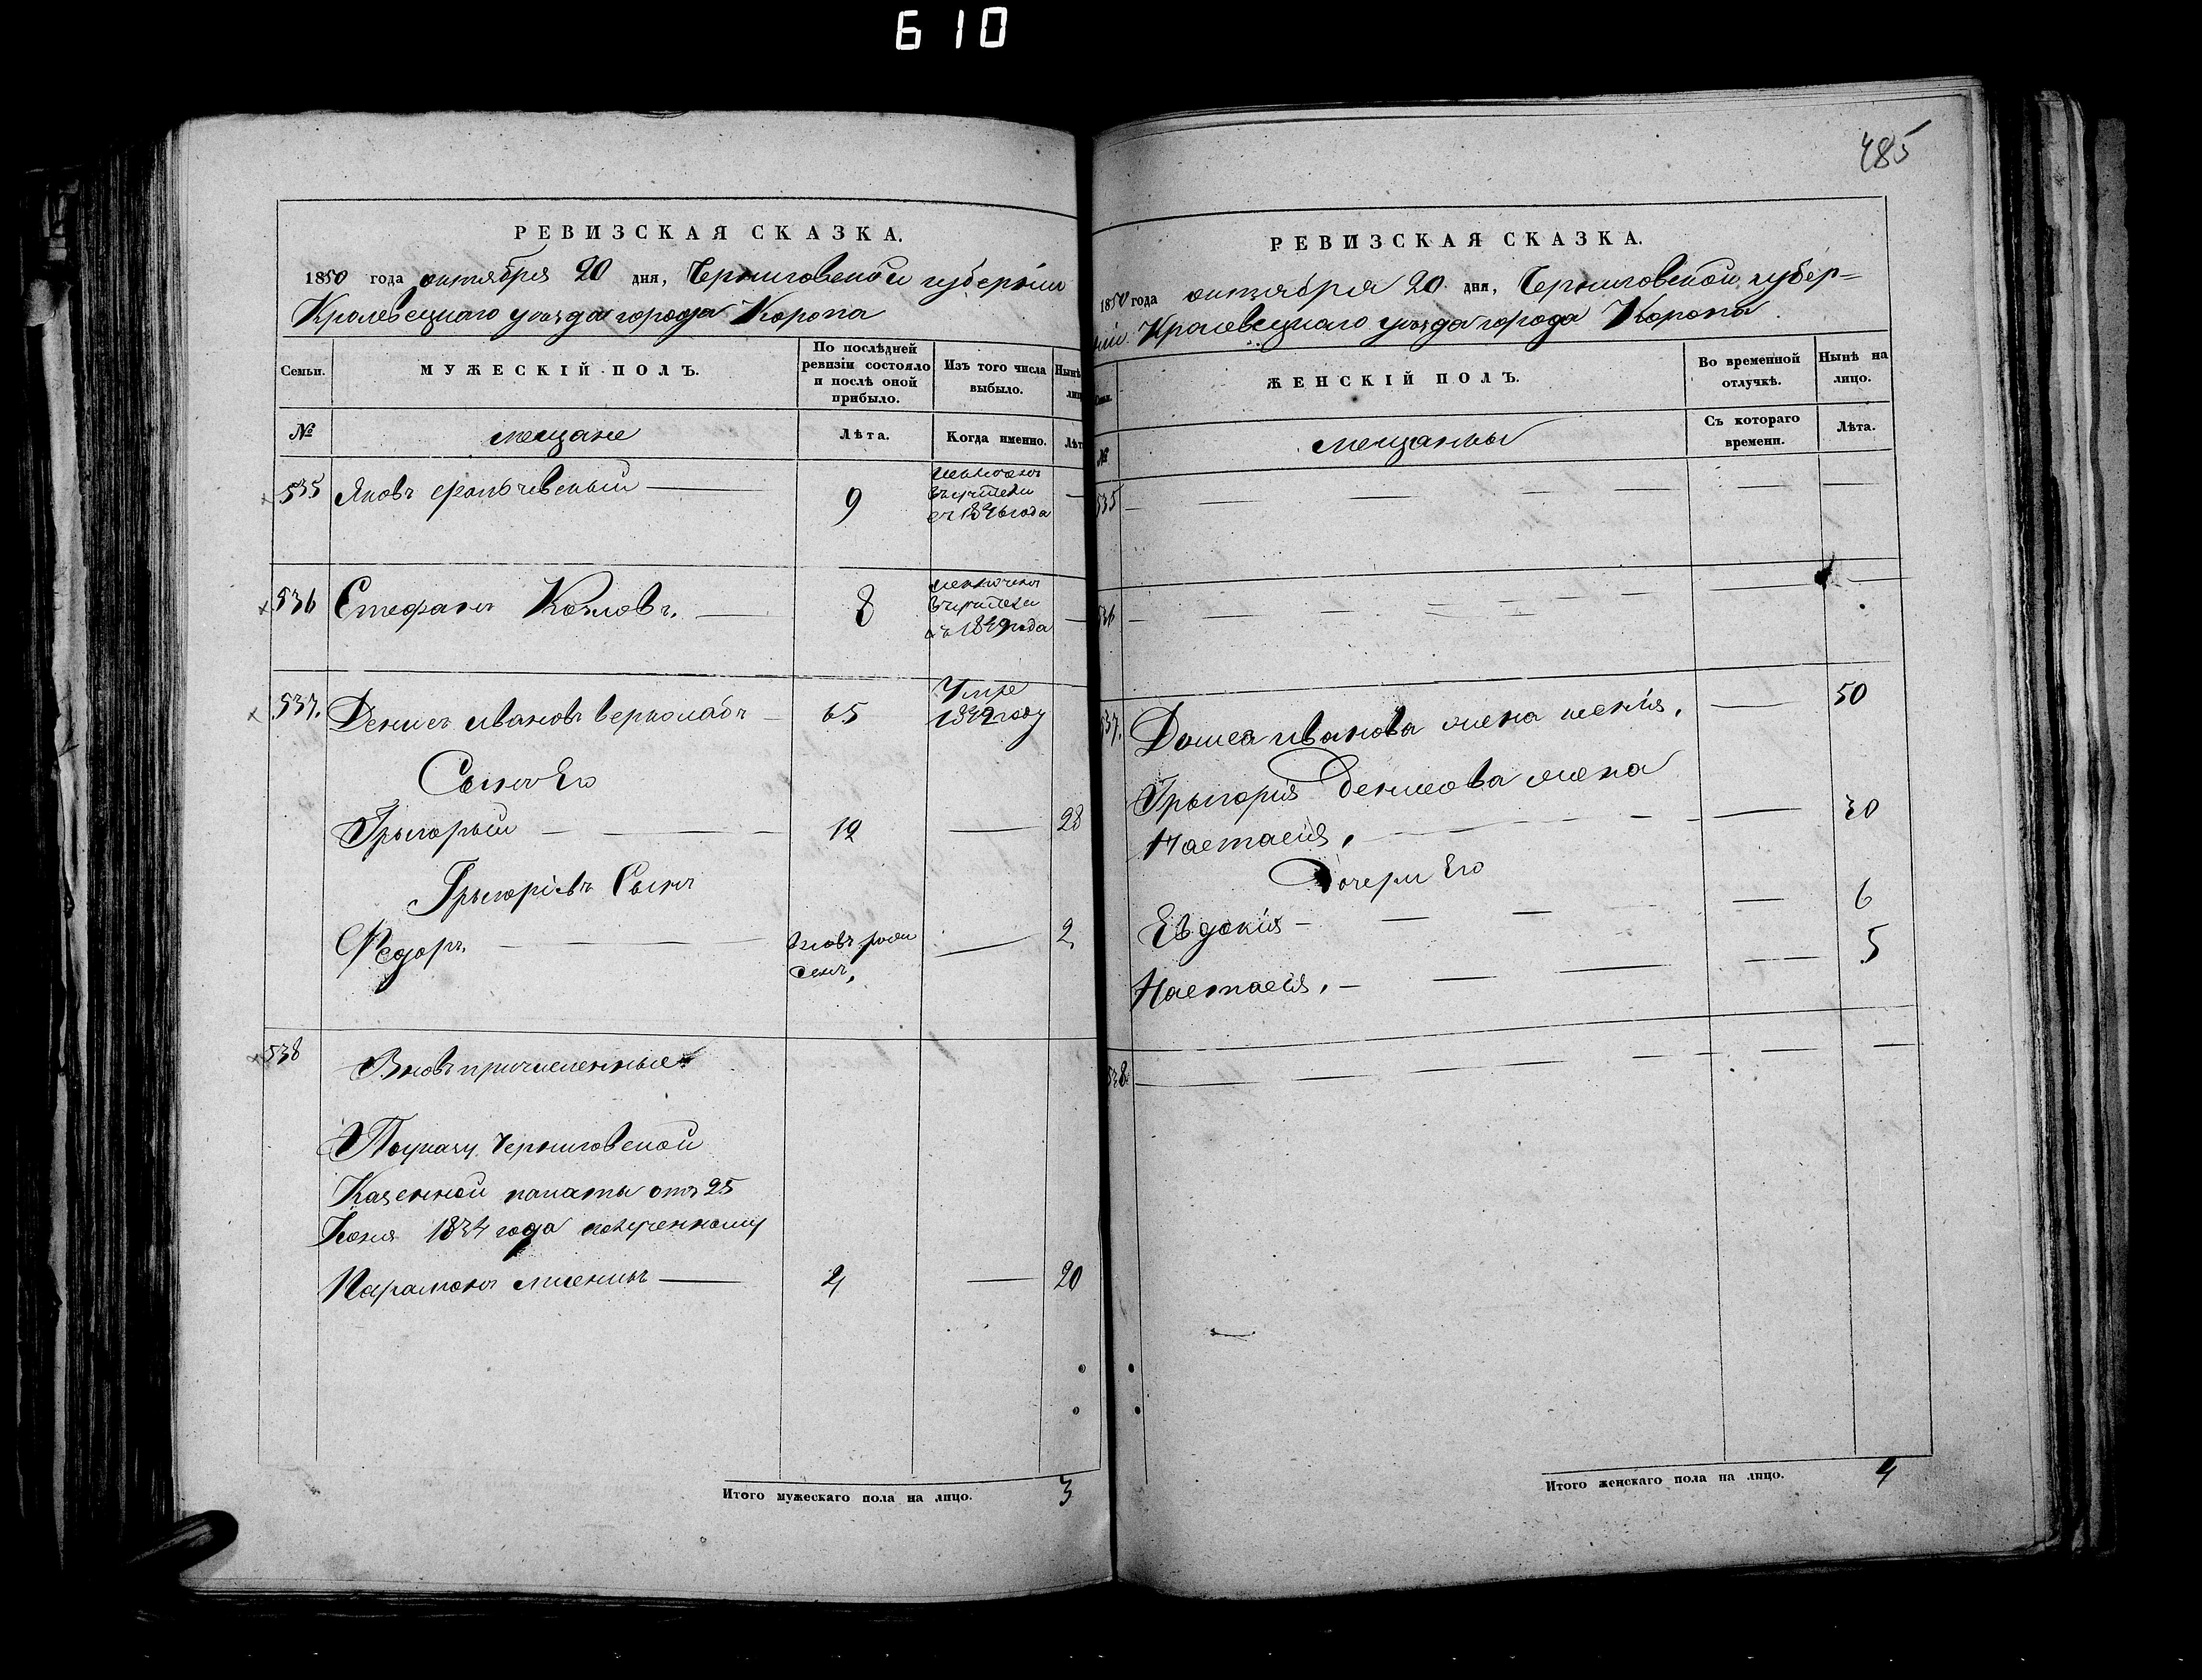 610
485
РЕВИЗСКАЯ СКАЗКА.
1850 года октября 20 дня, Черниговской губерніи
Кролевецкаго уезда города Коропа
Семьи.
МУЖЕСКІЙ ПОЛЪ.
По послѣдней ревизіи состояло и послѣ оной прибыло.
Изъ того числа выбыло.
Нынѣ
№
мещане
Лѣта.
Когда именно.
Лѣт
535 Яковъ 9
съ 1846 года
536 Стефанъ Козловъ. 8
1849 года
537. Денисъ Ивановъ 65 Умре
1842 году
Сынъ Его
Грыгорый 12 28
Грыгоріевъ Сынъ
Федоръ 2
538 Вновь причисленные
По указу Черниговской
Казенной палаты отъ 25
1834 года полученному
Парамонъ 4 20
Итого мужескаго пола на лицо. 3
РЕВИЗСКАЯ СКАЗКА.
1850 года октября 20 дня, Черниговской губер=
ніи Кролевецкаго уезда города Коропа
ЖЕНСКІЙ ПОЛЪ.
Во временной отлучкѣ.
Нынѣ на лицо.
№
мещанкы
Съ котораго времени.
Лѣта.
535
536
537. Ивановa жена 50
Грыгорія Денисова жена
Настасія, 30
Дочери Его
Евдокія 6
Настасія, 5
538
Итого женскаго пола на лицо. 4